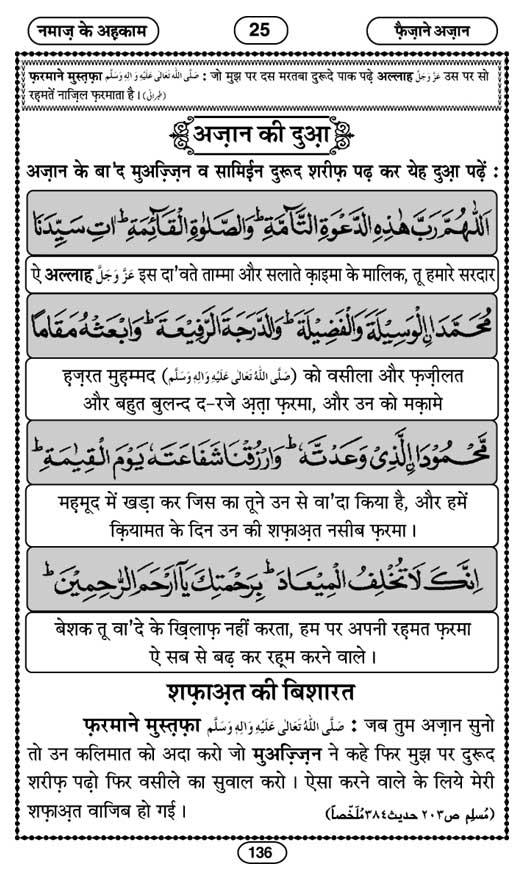 नमाज़ के अहकाम
25
फ़ैज़ाने अज़ान
फ़रमाने मुस्तफ़ा صَلَّى اللهُ تَعَالٰى عَلَيْهِ وَاٰلِهٖ وَسَلَّم : जो मुझ पर दस मरतबा दुरूदे पाक पढ़े अल्लाह عَزَّ وَجَلَّ उस पर सो
रह़मतें नाज़िल फ़रमाता है । (طبرانی)
अज़ान की दुआ़
अज़ान के बा'द मुअज़्ज़िन व सामिई़न दुरूद शरीफ़ पढ़ कर येह दुआ़ पढ़ें :
اَللّٰهُمَّ رَبَّ هٰذِهِ الدَّعْوَةِ التَّآمَّةِ ؕ وَالصَّلٰوةِ الْقَآئِمَةِ ؕ اٰتِ سَيِّدَنَا
ऐ अल्लाह عَزَّ وَجَلَّ इस दा'वते ताम्मा और सलाते क़ाइमा के मालिक, तू हमारे सरदार
مُحَمَّدَاۨ الْوَسِيْلَةَ وَالْفَضِيْلَةَ ؕ وَالدَّرَجَةَ الرَّفِيْعَةَ ؕ وَابْعَثْهُ مَقَامًا
ह़ज़रत मुह़म्मद (صَلَّى اللهُ تَعَالٰى عَلَيْهِ وَاٰلِهٖ وَسَلَّم) को वसीला और फ़ज़ीलत
और बहुत बुलन्द द-रजे अ़त़ा फ़रमा, और उन को मक़ामे
مَّحْمُوْدَاۨ الَّذِيْ وَعَدْتَّهٗ ؕ وَارْزُقْنَا شَفَاعَتَهٗ يَوْمَ الْقِيٰمَةِ ؕ
मह़मूद में खड़ा कर जिस का तूने उन से वा'दा किया है, और हमें
क़ियामत के दिन उन की शफ़ाअ़त नसीब फ़रमा ।
اِنَّكَ لَا تُخْلِفُ الْمِيْعَادَ ؕ بِرَحْمَتِكَ يَآ اَرْحَمَ الرّٰحِمِيْنَ ؕ
बेशक तू वा'दे के ख़िलाफ़ नहीं करता, हम पर अपनी रह़मत फ़रमा
ऐ सब से बढ़ कर रह़म करने वाले ।
शफ़ाअ़त की बिशारत
फ़रमाने मुस्तफ़ा صَلَّى اللهُ تَعَالٰى عَلَيْهِ وَاٰلِهٖ وَسَلَّم : जब तुम अज़ान सुनो
तो उन कलिमात को अदा करो जो मुअज़्ज़िन ने कहे फिर मुझ पर दुरूद
शरीफ़ पढ़ो फिर वसीले का सुवाल करो । ऐसा करने वाले के लिये मेरी
शफ़ाअ़त वाजिब हो गई । (مُسلِم ص٢٠٣ حديث٣٨٤مُلَخّصاً)
136